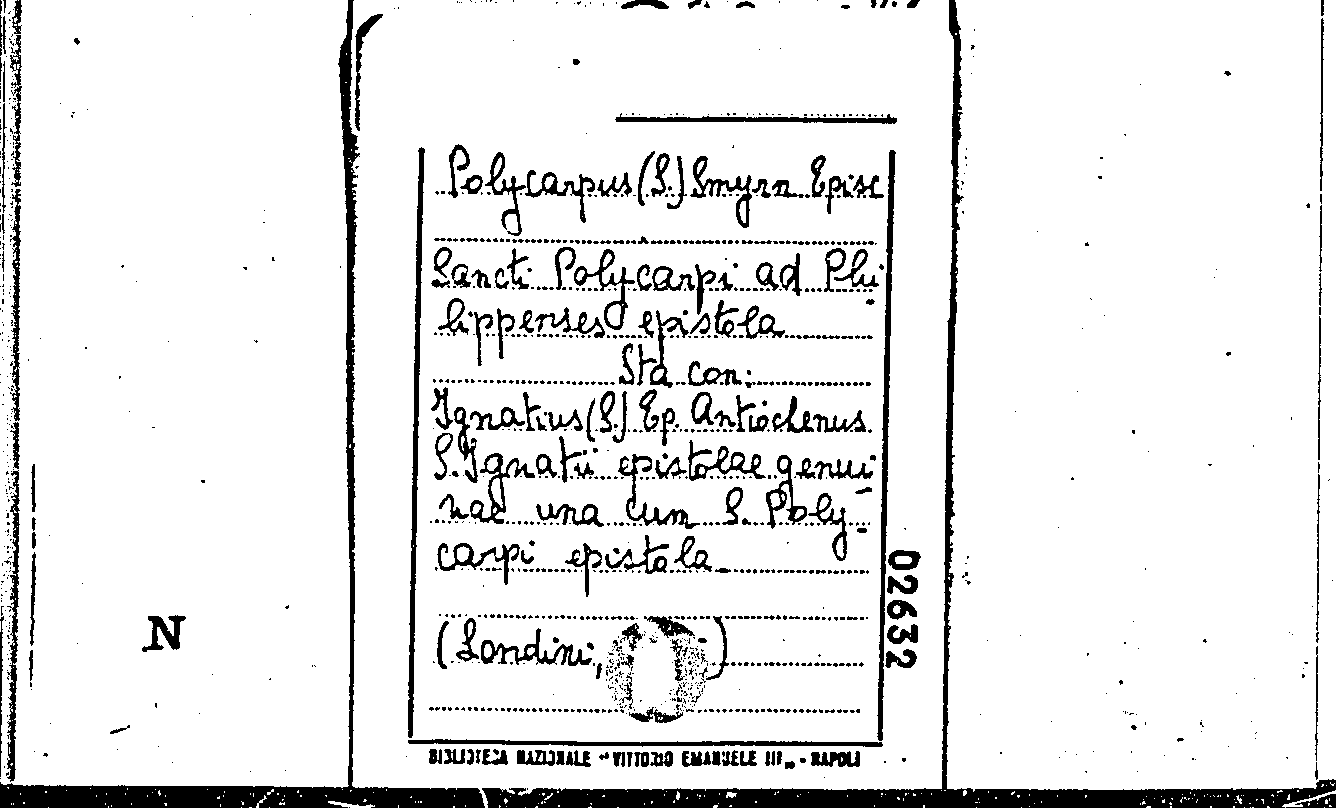 Polycarpus (S.) Smyrn Episc
Sancti Polycarpi ad Phi
lippenses epistola
Sta con:
Ignatius (S.) Ep. Antiochenus
S. Ignatii epistolae genui-
nae una cum S. Poly-
carpi epistola.
(Londini, )
02632
N
BIBLIOTECA NAZIONALE "VITTORIO EMANUELE III„ - NAPOLI